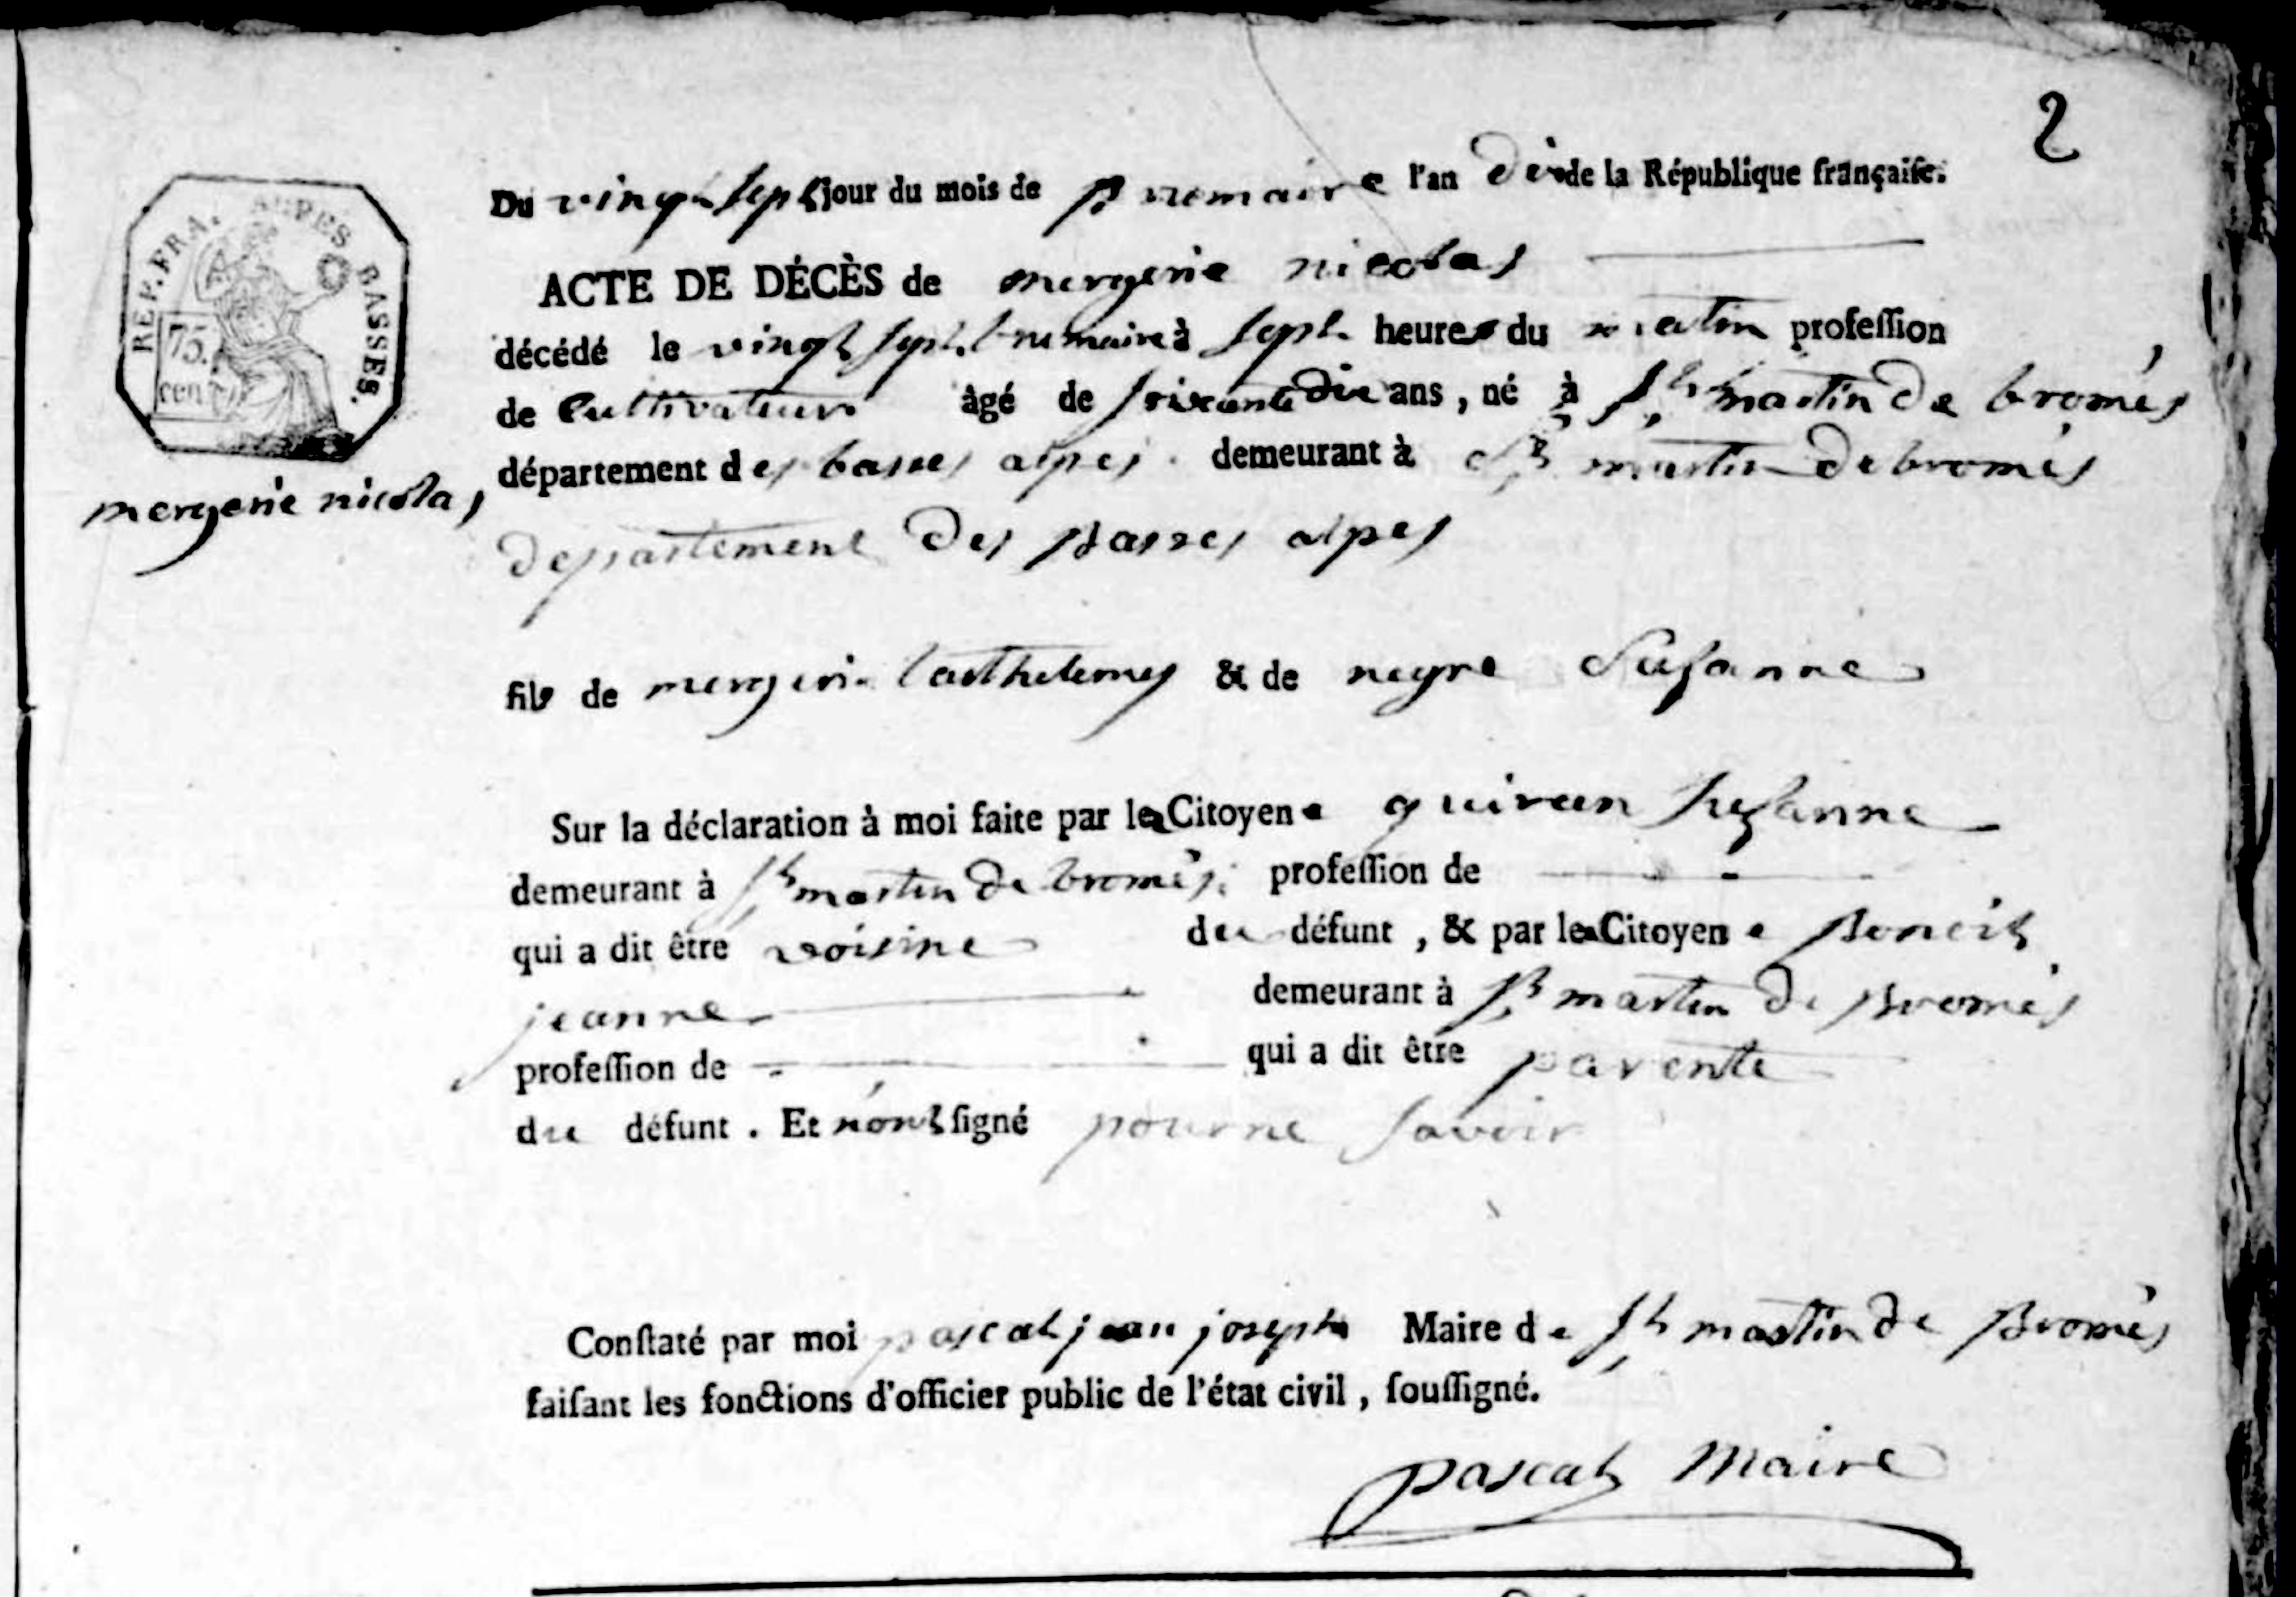 2
Du vingt sept jour du mois de Brumaire l'an dix de la République françaiſe.
REP. FRA. ALPES BASSES.
75.
cent.
ACTE DE DÉCÈS de mergerie nicolas
décédé le vingt sept brumaire à sept heures du matin profeſſion
de Cultivateur âgé de soixante dix ans, né à St martin de bromès
département des basses alpes. demeurant à St martin de bromès
mergerie nicolas
departement des Basses alpes
fils de mergerie barthelemy & de negre Susanne
Sur la déclaration à moi faite par la Citoyenne Susanne
demeurant à St martin de bromès; profeſſion de
qui a dit être voisine du défunt, & par la Citoyene Benoit
jeanne demeurant à St martin de Bromès
profeſſion de qui a dit être parente
du défunt. Et n'ont ſigné pour ne savoir
Conſtaté par moi pascal jean joseph Maire de St martin de Bromès
faiſant les fonctions d'officier public de l'état civil, ſouſſigné.
pascal Maire